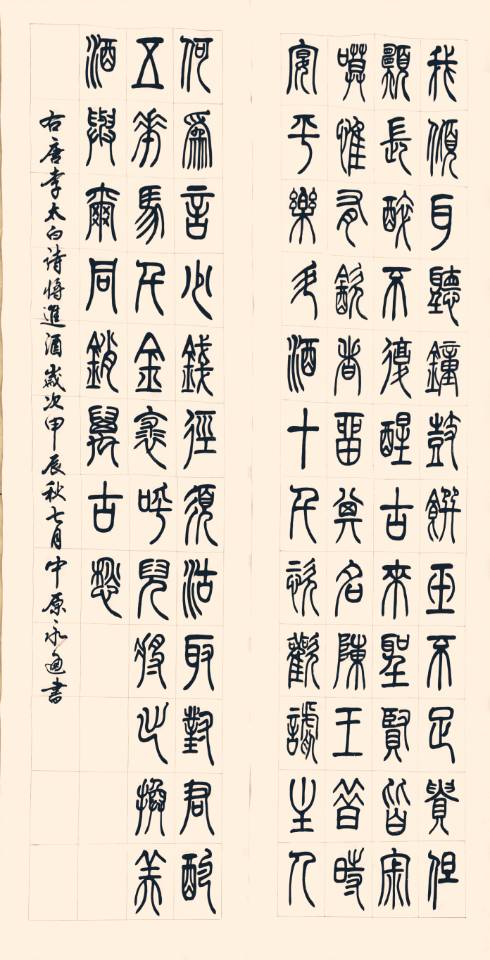 我傾耳聽鐘鼓饌玉不足貴但
願長醉不復醒古來聖賢皆寂
嗼惟有飲者留其名陳王昔時
宴平樂斗酒十千恣歡謔主人
何為言少錢徑須沽取對君酌
五花馬千金裘呼兒將出換美
酒與爾同銷萬古愁
右唐李太白诗將進酒歲次甲辰秋七月中原永通書